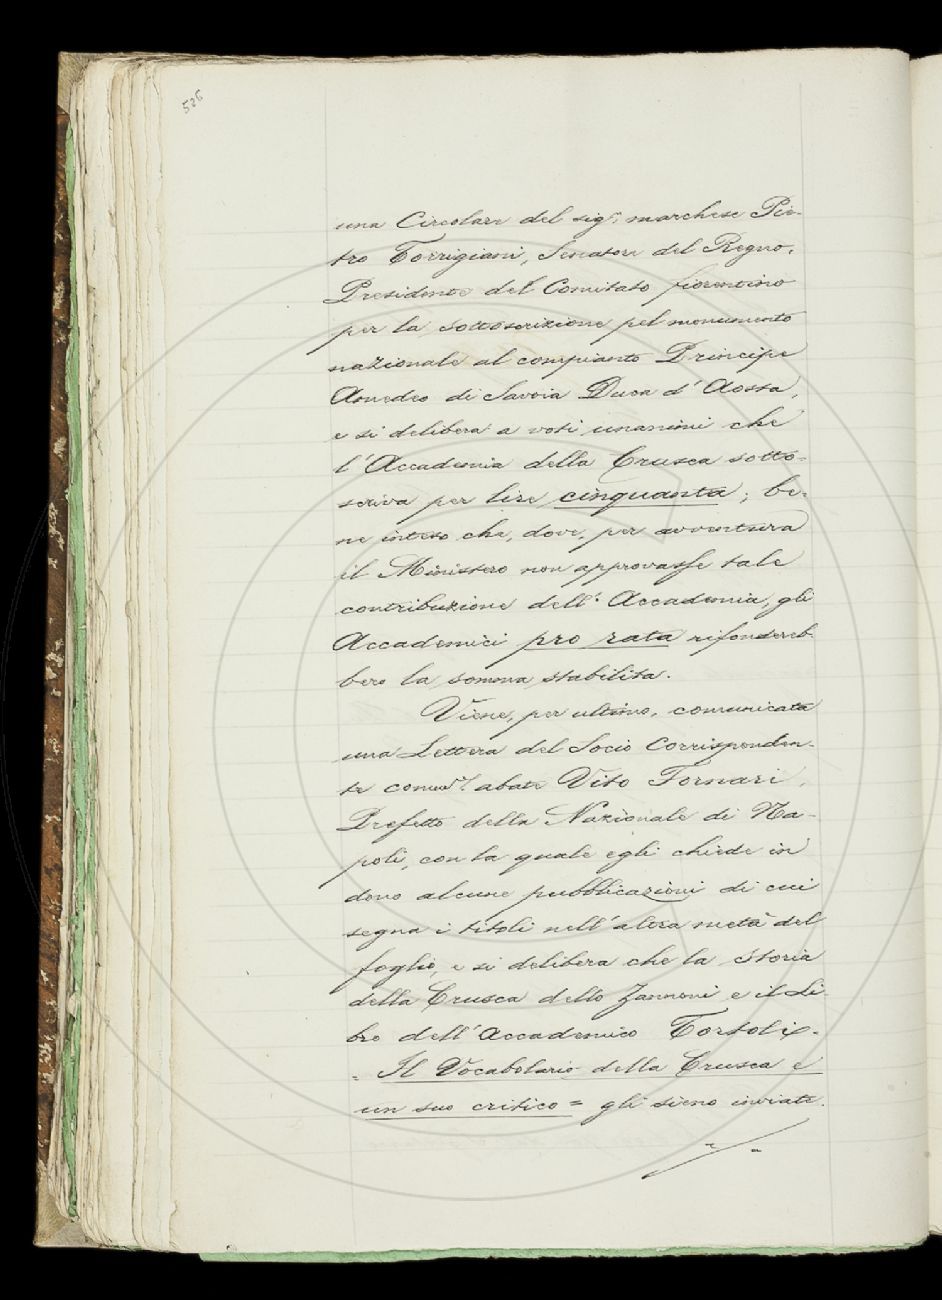 526
una Circolare del sigr. marchese Pie-
tro Torrigiani, Senatore del Regno,
Presidente del Comitato fiorentino
per la sottoscrizione pel monumento
nazionale al compianto Principe
Amedeo di Savoia Duca d'Aosta,
e si delibera a voti unanimi che
l'Accademia della Crusca sotto-
scriva per lire cinquanta; be-
ne inteso che, dove, per avventura
il Ministero non approvasse tale
contribuzione dell'Accademia, gli
Accademici pro rata rifondereb-
bero la somma stabilita.
Viene, per ultimo, comunicata
una Lettera del Socio Corrisponden-
te abate Vito Fornari,
Prefetto della Nazionale di Na-
poli, con la quale egli chiede in
dono alcune pubblicazioni di cui
segna i titoli nell'altra metà del
foglio, e si delibera che la Storia
della Crusca dello Zannoni e il Li-
bro dell'Accademico Tortoli =
= Il Vocabolario della Crusca e
un suo critico = gli sieno inviate.